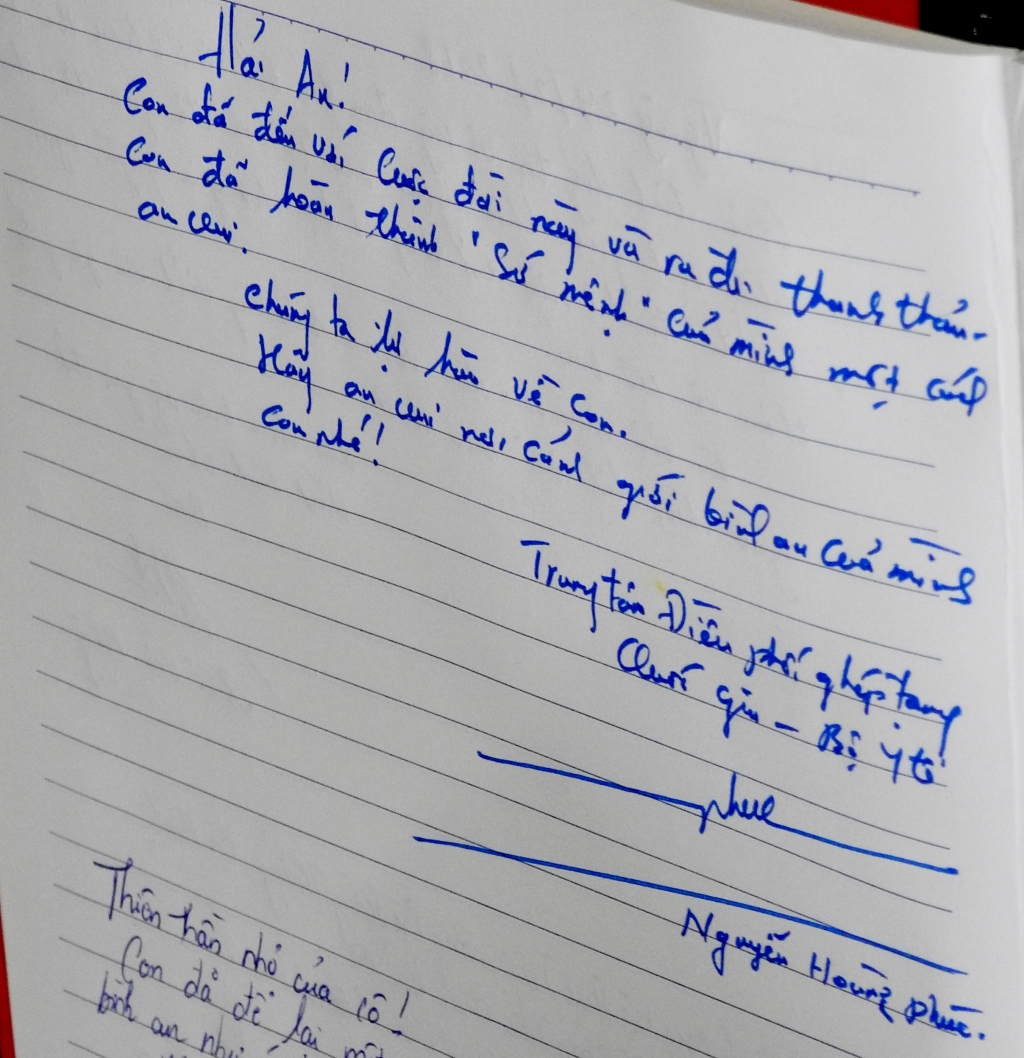 Hải An!
Con đã đến với cuộc đời này và ra đi thanh thản.
Con đã hoàn thành "sứ mệnh" của mình một cách
an vui.
Chúng ta tự hào về con.
Hãy an vui nơi cảnh giới bình an của mình
con nhé!
Trung tâm Điều phối ghép tạng
Quốc gia - Bộ Y tế
phúc
Nguyễn Hoàng Phúc.
Thiên thần nhỏ của cô!
Con đã để lại
bình an